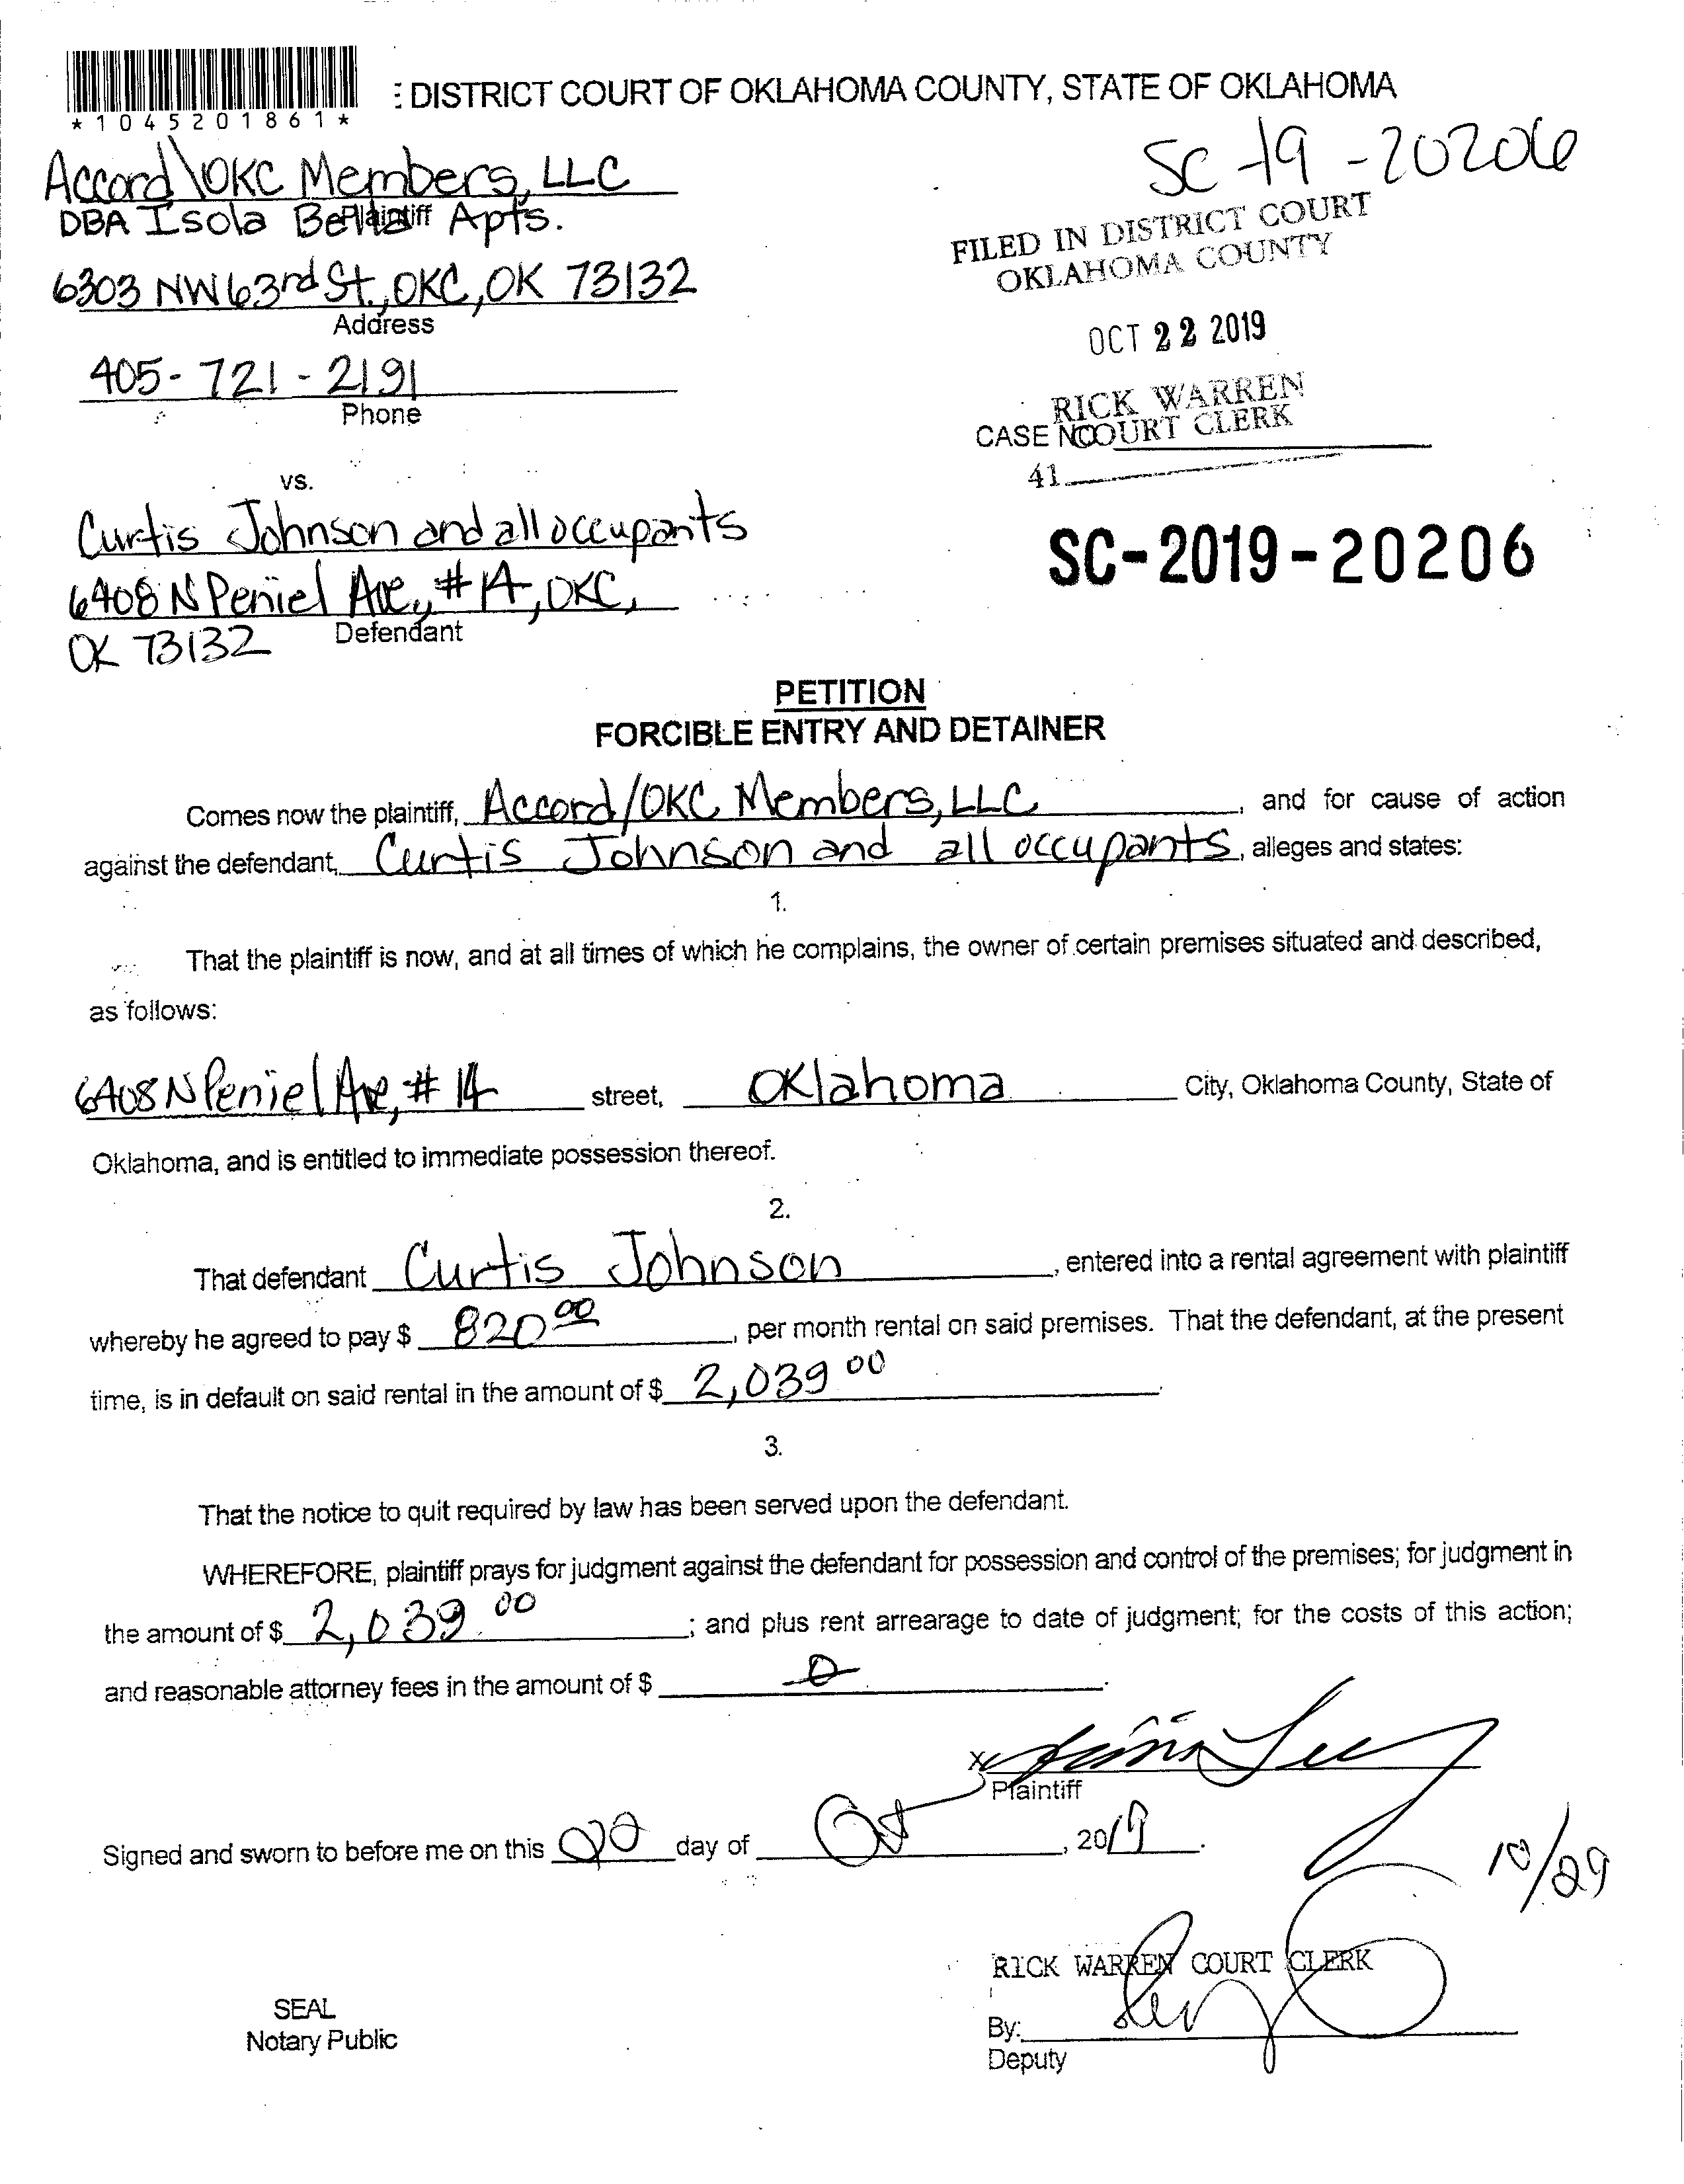 : DISTRICT COURT OF OKLAHOMA COUNTY, STATE OF OKLAHOMA
*1045201861*
SC-19-20206
Accord\OKC Members, LLC
Plaintiff
DBA Isola Bella Apts.
FILED IN DISTRICT COURT
OKLAHOMA COUNTY
6303 NW 63rd St., OKC, OK 73132
Address
OCT 22 2019
405-721-2191
Phone
RICK WARREN
COURT CLERK
CASE NO
41
vs.
Curtis Johnson and all occupants
SC-2019-20206
6408 N Peniel Ave, #14, OKC,
OK 73132
Defendant
PETITION
FORCIBLE ENTRY AND DETAINER
Comes now the plaintiff, Accord/OKC Members, LLC, and for cause of action
against the defendant, Curtis Johnson and all occupants, alleges and states:
1.
That the plaintiff is now, and at all times of which he complains, the owner of certain premises situated and described,
as follows:
6408 N Peniel Ave, # 14 street, Oklahoma City, Oklahoma County, State of
Oklahoma, and is entitled to immediate possession thereof.
2.
That defendant Curtis Johnson, entered into a rental agreement with plaintiff
whereby he agreed to pay $ 820 00, per month rental on said premises. That the defendant, at the present
time, is in default on said rental in the amount of $ 2,039 00.
3.
That the notice to quit required by law has been served upon the defendant.
WHEREFORE, plaintiff prays for judgment against the defendant for possession and control of the premises; for judgment in
the amount of $ 2,039.00; and plus rent arrearage to date of judgment; for the costs of this action;
and reasonable attorney fees in the amount of $ 0.
X
Plaintiff
Signed and sworn to before me on this 22 day of Oct, 2019.
10/29
RICK WARREN COURT CLERK
SEAL
Notary Public
By:
Deputy